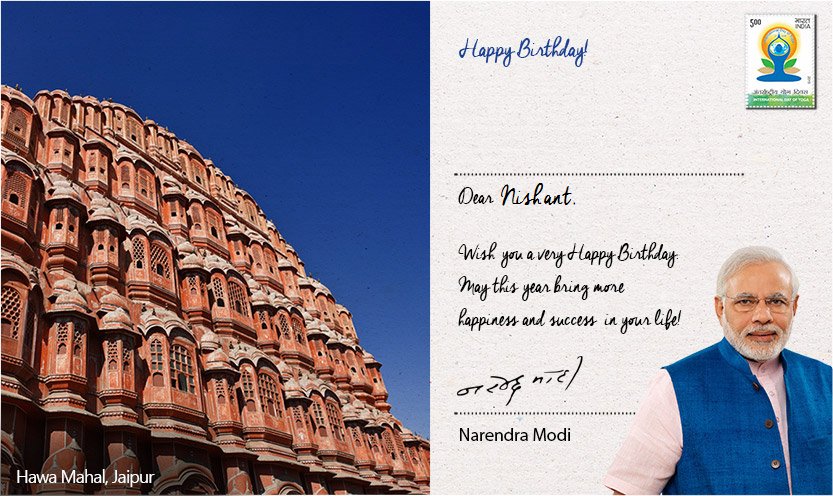 Happy Birthday!
500 भारत
INDIA
अंतर्राष्ट्रीय योग दिवस
INTERNATIONAL DAY OF YOGA
Dear Nishant,
Wish you a very Happy Birthday.
May this year bring more
happiness and success in your life!
नरेन्द्र मोदी
Narendra Modi
Hawa Mahal, Jaipur